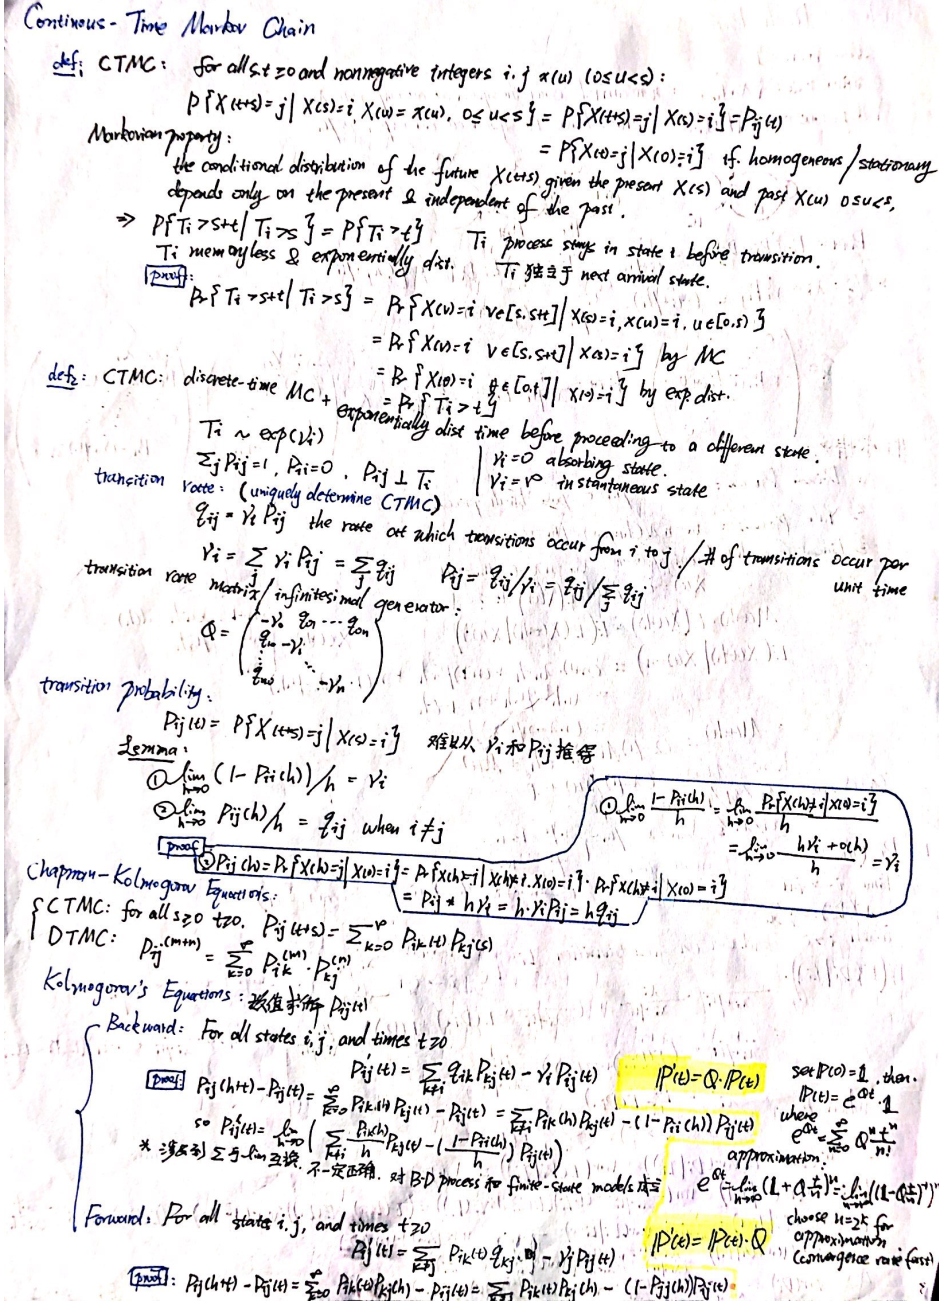 Continous-Time Markov Chain
def1: CTMC: for all s,t ≥0 and nonnegative integers i, j x(u) (0≤u<s):
P{X(t+s)=j | X(s)=i, X(u)=x(u), 0≤u<s} = P{X(t+s)=j | X(s)=i} = Pij(t)
= P{X(t)=j | X(0)=i} if homogeneous / stationary
Markovian property:
the conditional distribution of the future X(t+s) given the present X(s) and past X(u) 0≤u<s,
depends only on the present & independent of the past.
⇒ P{Ti>s+t | Ti>s} = P{Ti>t} Ti process stays in state i before transition.
Ti memoryless & exponentially dist. Ti 独立于 next arrival state.
proof:
Pr{Ti>s+t | Ti>s} = Pr{X(v)=i v∈[s,s+t] | X(s)=i, X(u)=i, u∈[0,s)}
= Pr{X(v)=i v∈[s,s+t] | X(s)=i} by MC
= Pr{X(v)=i ∈[0,t] | X(0)=i} by exp. dist.
= Pr{Ti>t}
def2: CTMC: discrete-time MC + exponentially dist time before proceeding to a different state.
Ti ~ exp(νi) νi=0 absorbing state.
Σj Pij=1, Pii=0, Pij ⊥ Ti νi=∞ instantaneous state
transition rate: (uniquely determine CTMC)
qij = νi Pij the rate at which transitions occur from i to j / # of transitions occur per unit time
νi = Σj νi Pij = Σj qij Pij = qij/νi = qij/Σj qij
transition rate matrix / infinitesimal generator:
Q = ( -ν0 q01 ··· q0n
q10 -ν1
⋮ ⋱
qn0 -νn )
transition probability:
Pij(t) = P{X(t+s)=j | X(s)=i} 难以从 νi 和 Pij 推得
Lemma:
① lim h→0 (1-Pii(h))/h = νi
② lim h→0 Pij(h)/h = qij when i≠j
① lim h→0 (1-Pii(h))/h = lim h→0 Pr{X(h)≠i | X(0)=i}/h
= lim h→0 (hνi + o(h))/h = νi
proof
② Pij(h) = Pr{X(h)=j | X(0)=i} = Pr{X(h)=j | X(h)≠i, X(0)=i} · Pr{X(h)≠i | X(0)=i}
= Pij * hνi = h·νiPij = hqij
Chapman-Kolmogorov Equations:
CTMC: for all s≥0 t≥0, Pij(t+s) = Σ k=0 ∞ Pik(t) Pkj(s)
DTMC: Pij^(m+n) = Σ k=0 ∞ Pik^(m) · Pkj^(n)
Kolmogorov's Equations: 数值求解 Pij(t)
Backward: For all states i, j, and times t≥0
P'ij(t) = Σ k≠i qik Pkj(t) - νi Pij(t) P'(t)=Q·P(t)
proof: Pij(h+t)-Pij(t) = Σ k=0 ∞ Pik(h) Pkj(t) - Pij(t) = Σ k≠i Pik(h) Pkj(t) - (1-Pii(h)) Pij(t)
so P'ij(t) = lim h→0 ( Σ k≠i Pik(h)/h Pkj(t) - ((1-Pii(h))/h) Pij(t) )
* 涉及到 Σ 与 lim 互换, 不一定正确. 对 B-D process 和 finite-state models 成立
set P(0)=1, then
P(t)=e^Qt·1
where
e^Qt = Σ n=0 ∞ Q^n t^n/n!
approximation:
e^Qt = lim n→∞ (1+Q t/n)^n = lim n→∞ ((1-Q t/n)^-1)^n
choose n=2^k for
approximation
(convergence rate fast)
Forward: For all states i, j, and times t≥0
P'ij(t) = Σ k≠j Pik(t) qkj - νj Pij(t) P'(t)=P(t)·Q
proof: Pij(h+t)-Pij(t) = Σ k=0 ∞ Pik(t)Pkj(h) - Pij(t) = Σ k≠j Pik(t)Pkj(h) - (1-Pjj(h))Pij(t)